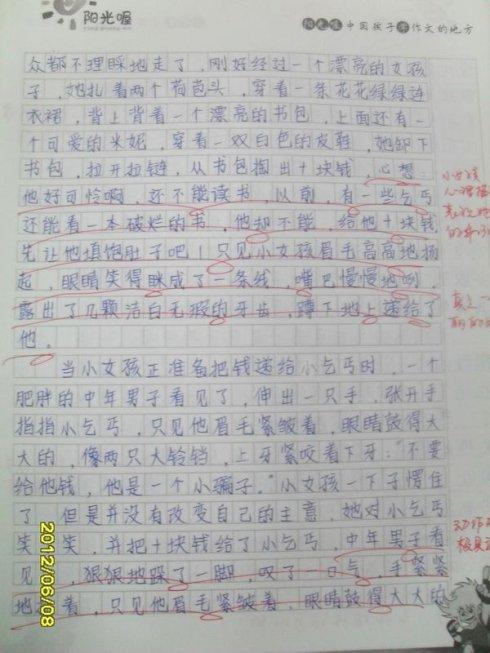 阳光喔
阳光喔中国孩子学作文的地方
众都不理睬地走了，刚好经过一个漂亮的女孩
子，她扎着两个荷苞头，穿着一条花花绿绿连
衣裙，背上背着一个漂亮的书包，上面还有一
个可爱的米妮，穿着一双白色的皮鞋，她卸下
书包，拉开拉链，从书包掏出十块钱，心想：
他好可怜啊，还不能读书，以前，有一些乞丐
还能看一本破烂的书，他却不能，给他十块钱
先让他填饱肚子吧！只见小女孩眉毛高高地扬
起，眼睛笑得眯成了一条线，嘴巴慢慢地咧，
露出了几颗洁白无瑕的牙齿，蹲下地上递给了
他。
当小女孩正准备把钱递给小乞丐时，一个
肥胖的中年男子看见了，伸出一只手，张开手
指指小乞丐，只见他眉毛紧皱着，眼睛鼓得大
大的，像两只大铃铛，上牙紧咬着下牙：“不要
给他钱，他是一个小骗子。”小女孩一下子愣住
了，但是并没有改变自己的主意，她对小乞丐
笑一笑，并把十块钱给了小乞丐，中年男子看
见，狠狠地跺了一脚，叹了一口气，手紧紧
地着，只见他眉毛紧皱着，眼睛鼓得大大的
2012/06/08